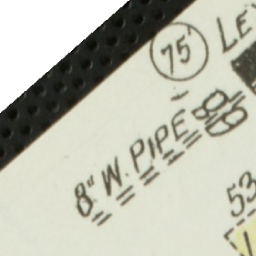 75'
LE
8" W. PIPE
53